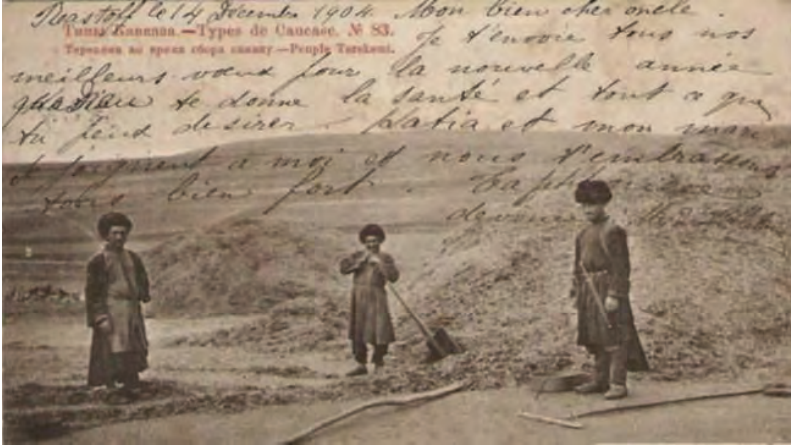 Rostoff le 14 Décembre 1904. Mon bien cher oncle.
Типы Кавказа.—Types de Caucase. № 83.
Je t'envoie tous nos
Терекемы во время сбора саману.—Peuple Terekemi.
meilleurs vœux pour la nouvelle année
que Dieu te donne la santé et tout ce que
tu peux desirer. Katia et mon mari
se joignent à moi et nous t'embrassons
tous bien fort.